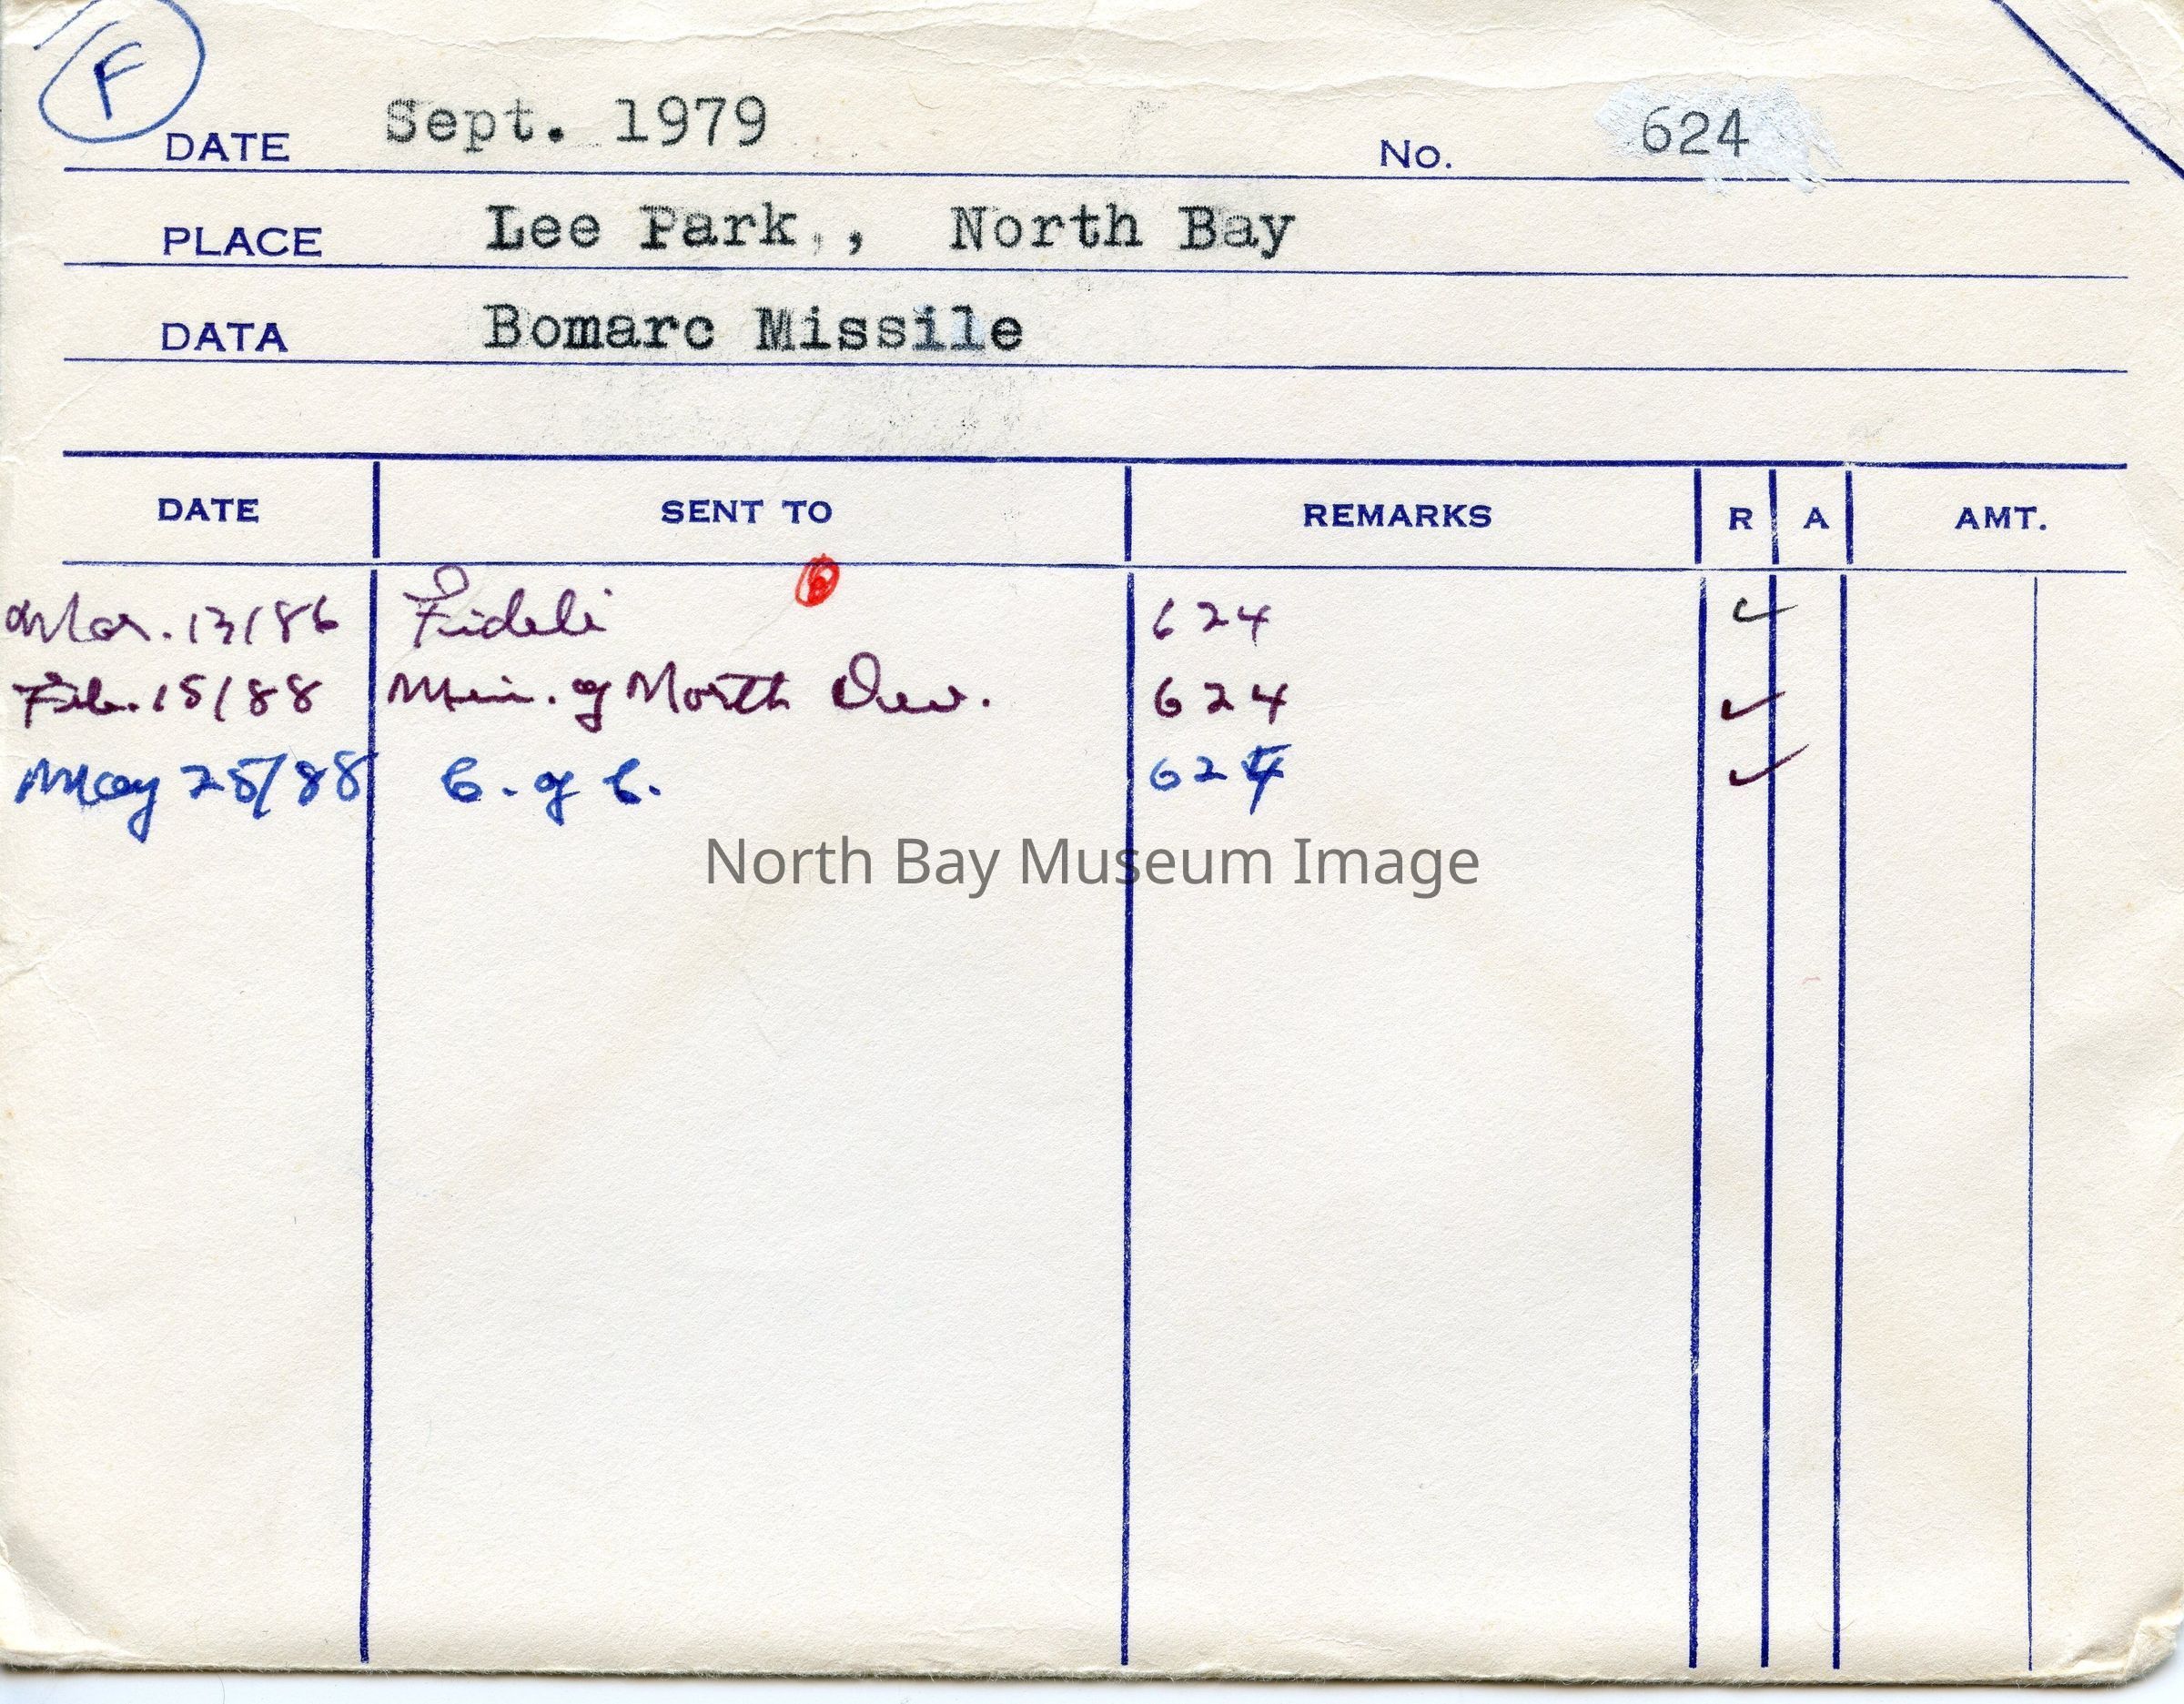 F
DATE Sept. 1979 No. 624
PLACE Lee Park,, North Bay
DATA Bomarc Missile
DATE SENT TO REMARKS R A AMT.
Mar. 13/86 Fideli 624 ✓
Feb. 15/88 Min. of North Dev. 624 ✓
May 25/88 C. of C. 624 ✓
North Bay Museum Image